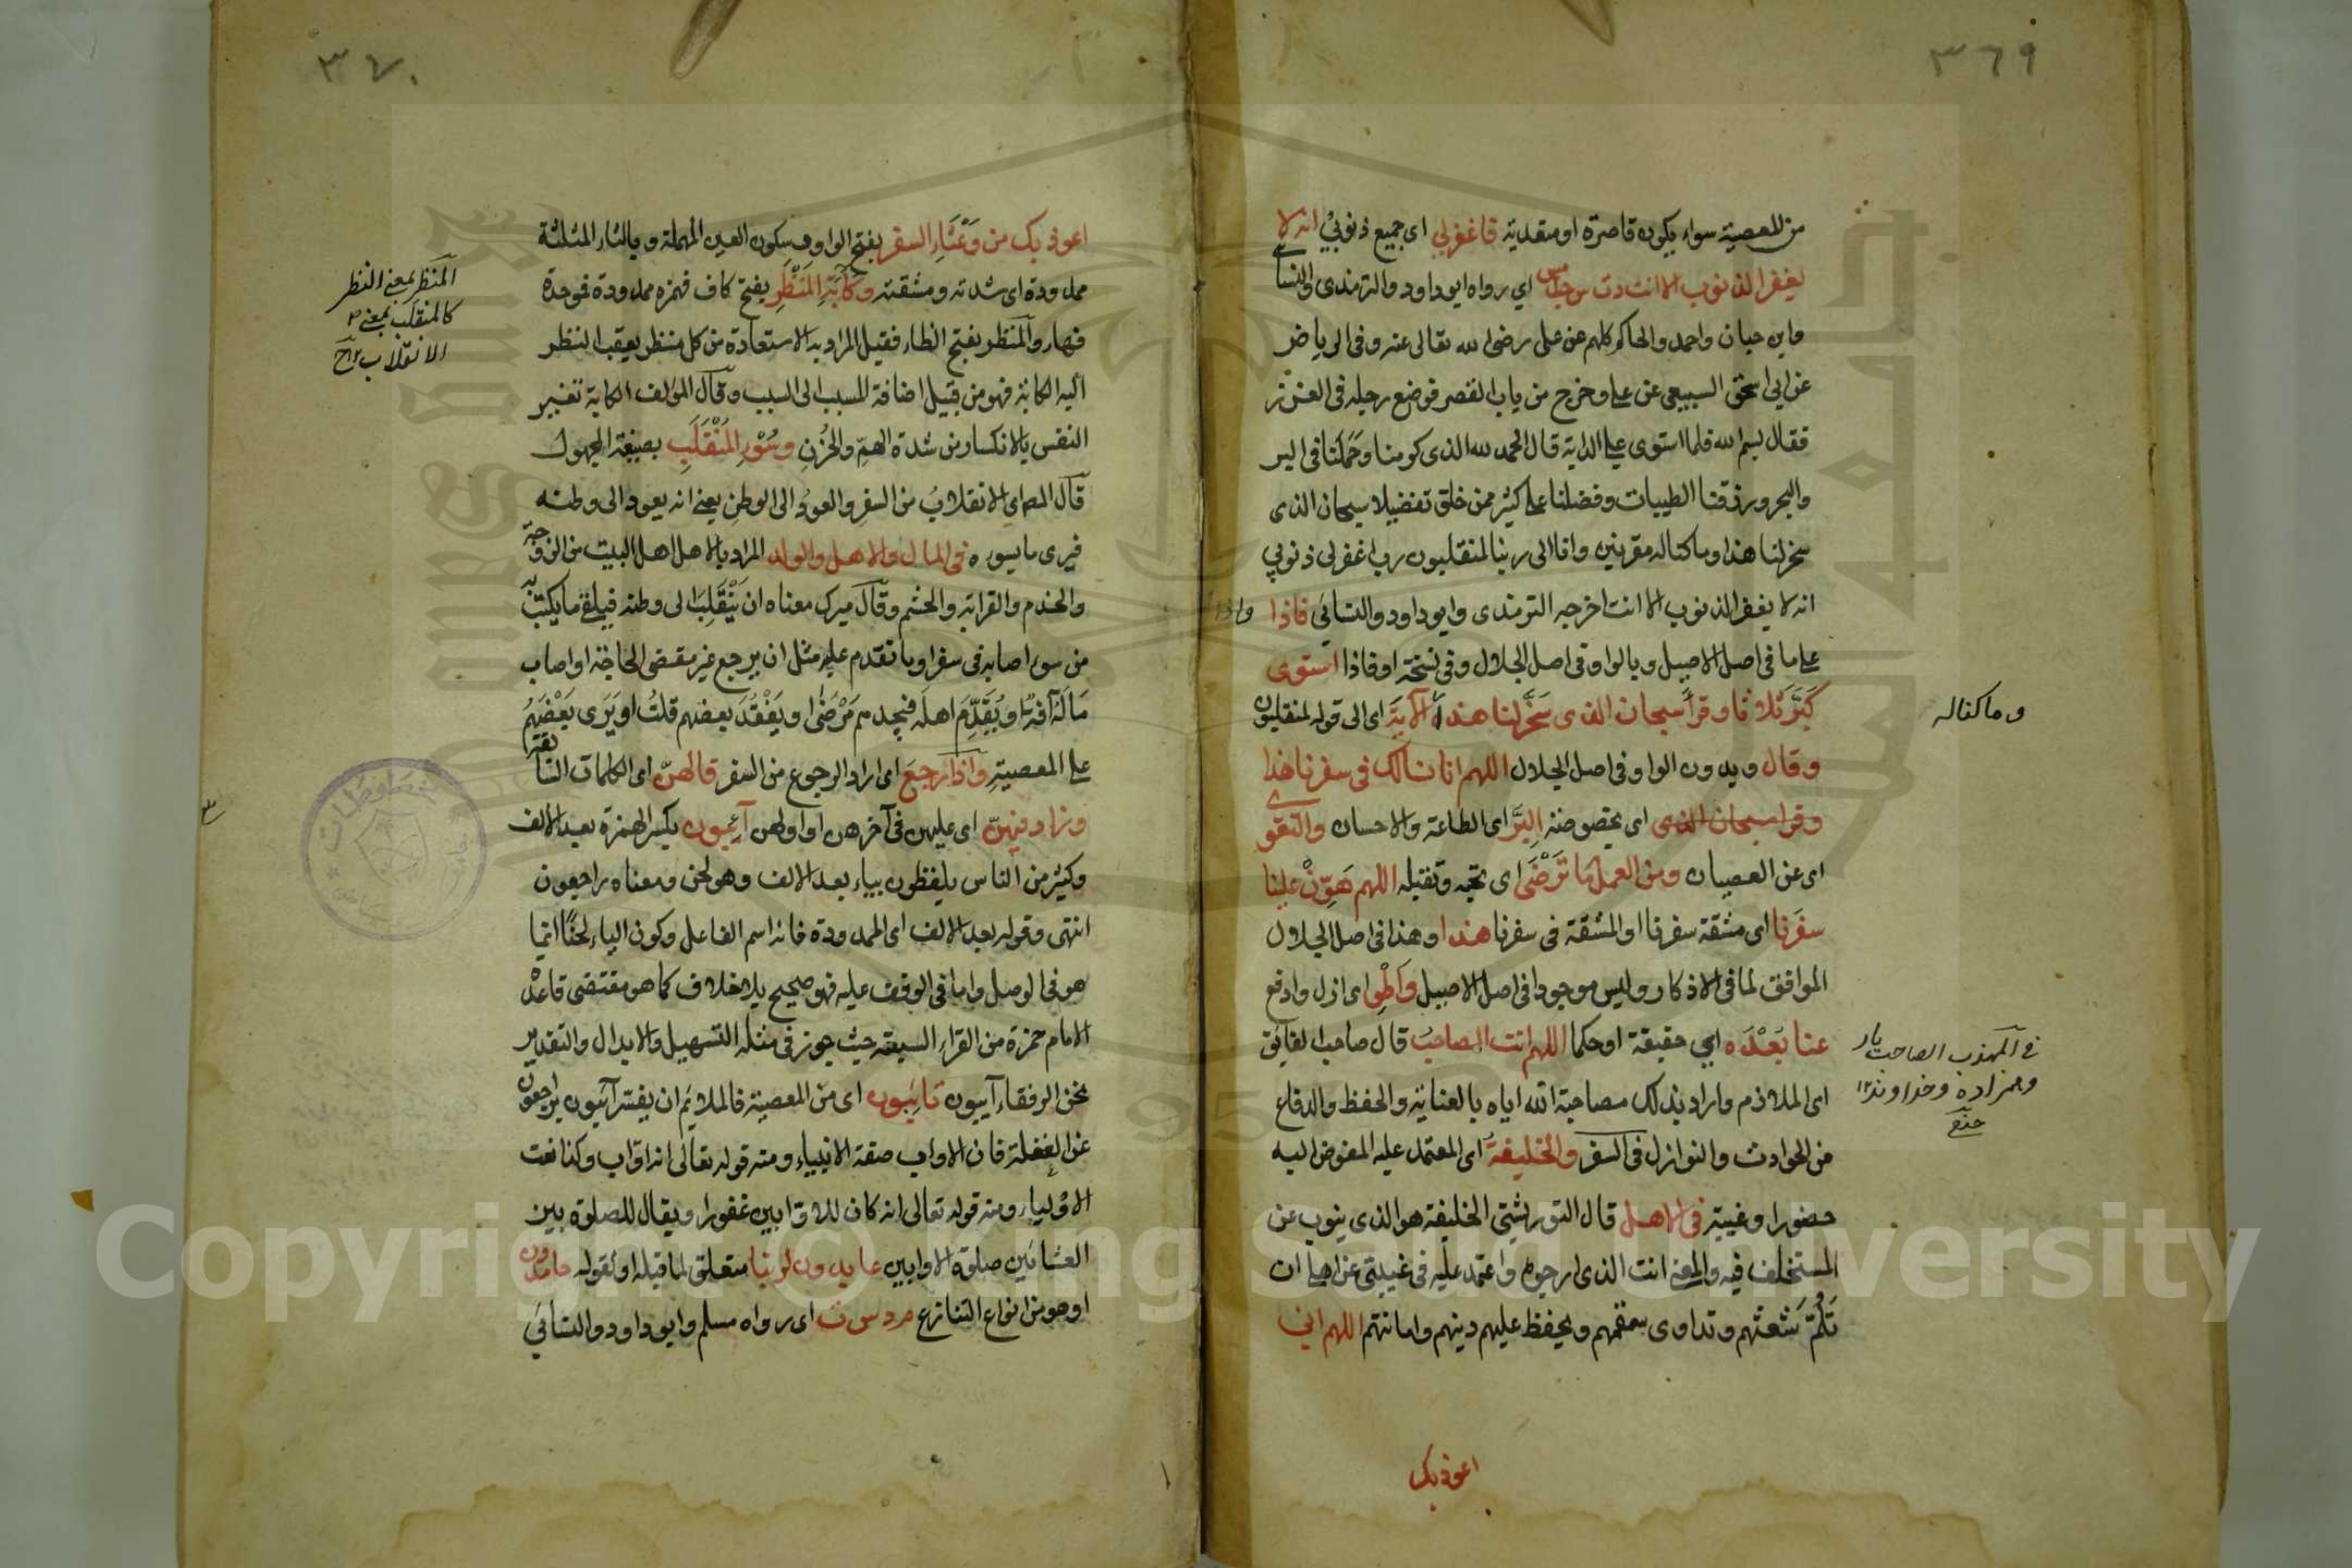 ٣٦٩
من المعصية سواء يكون قاصرة او متعدية فاغفرلي اى جميع ذنوبي انه لا
يغفر الذنوب الا انت د ت س حب مس اي رواه ابوداود والترمذى والنسا
وابن حبان واحمد والحاكم كلهم عن على رضى الله تعالى عنه وفى الرياض
عن ابى اسحق السبيعى عن على وخرج من باب القصر فوضع رجله فى الغرز
فقال بسم الله فلما استوى على الدابة قال الحمد لله الذى كرمنا وحملنا فى البر
والبحر ورزقنا الطيبات وفضلنا على كثير ممن خلق تفضيلا سبحان الذى
سخر لنا هذا وما كنا له مقرنين وانا الى ربنا لمنقلبون رب اغفر لى ذنوبي
انه لا يغفر الذنوب الا انت اخرجه الترمذى وابوداود والنسائى فاذا
واذا
على ما فى اصل الاصيل وبالواو فى اصل الجلال وفى نسخة او فاذا استوى
كَبَّرَ ثلاثا وقرأ سبحان الذى سَخَّر لنا هذا الآية اى الى قوله لمنقلبون
وما كنا له
وقال وبدون الواو فى اصل الجلال اللهم انا نسالك فى سفرنا هذا
وقرا سبحان الذى اى بخصوصه البِرَّ اى الطاعة والاحسان والتقوى
اى عن العصيان ومن العمل ما ترضى اى تحبه وتقبله اللهم هَوِّنْ علينا
سفرنا اى مشقة سفرنا او المشقة فى سفرنا هذا وهذا فى اصل الجلال
الموافق لما فى الاذكار وليس موجودا فى اصل الاصيل واطْوِ اى ازل وادفع
عنا بُعْدَه اي حقيقة او حكما اللهم انت الصاحب قال صاحب الفائق
فى المهذب الصاحب يار
وهمزاده وخداوند ١٢
اى الملازم واراد بذلك مصاحبة الله اياه بالعناية والحفظ والدفاع
من الحوادث والنوازل فى السفر والخليفة اى المعتمد عليه المفوض اليه
حضورا وغيبة فى الاهل قال التوربشتى الخليفة هو الذى ينوب عن
المستخلف فيه والمعنى انت الذى ارجوه واعتمد عليه فى غيبتى عن اهلى ان
تَلُمّ شعثهم وتداوى سقمهم وتحفظ عليهم دينهم وامانتهم اللهم انى
اعوذ بك
٣٧٠
اعوذ بك من وَعْثَاءِ السفر بفتح الواو وسكون العين المهملة وبالثاء المثلثة
ممدودة اى شدته ومشقته وكآبة المَنْظَرِ بفتح كاف فهمزة ممدودة فموحدة
المنظر بمعنى النظر
كالمنقلب بمعنى
الانقلاب
فهاء والمنظر بفتح الظاء فقيل المراد به الاستعاذة من كل منظر يعقب النظر
اليه الكابة فهو من قبيل اضافة المسبب الى السبب وقال المؤلف الكابة تغيير
النفس بالانكسار من شدة الهمّ والحُزن وسُوْءِ المُنْقَلَبِ بصيغة المجهول
قال المص اى الانقلاب من السفر والعود الى الوطن يعنى انه يعود الى وطنه
فيرى ما يسوره فى المال والاهل والولد المراد بالاهل اهل البيت من الزوجة
والخدم والقرابة والحشم وقال ميرك معناه ان يَنْقَلِبَ الى وطنه فيلقى ما يكتئب به
من سوء اصابه فى سفر او ما تقدم عليه مثل ان يرجع غير مقضى الحاجة او اصاب
مَالَه آفة او يُقَدِّمَ اهله فيجدهم مَرْضٰى او يَفْقُدَ بعضهم قلتُ او يَرَى بَعْضَهُم
على المعصية واذا رجع اى اراد الرجوع من السفر قالهنّ اى الكلمات السابقة
وزاد فيهنّ اى عليهن فى آخرهن او اولهن آئبون بكسر الهمزة بعد الالف
وكثير من الناس يلفظون بياء بعد الالف وهو لحن ومعناه راجعون
انتهى وقوله بعد الالف اى الممدودة فانه اسم الفاعل وكون الياء لحنًا انما
هو فى الوصل واما فى الوقف عليه فهو صحيح بلا خلاف كما هو مقتضى قاعدة
الامام حمزة من القراء السبعة حيث جوز فى مثله التسهيل والابدال والتقدير
نحن الرفقاء آيبون تائبون اى من المعصية فالملائم ان يفسر آئبون براجعون
عن الغفلة فان الاواب صفة الانبياء ومنه قوله تعالى انه اواب وكذا نعت
الاولياء ومنه قوله تعالى انه كان للاوابين غفورا ويقال للصلوة بين
العشائين صلوة الاوابين عابدون لربنا متعلق لما قبله او لقوله حامدون
او هو من انواع التنازع م د س ت اى رواه مسلم وابوداود والنسائى
Copyright © King Saud University